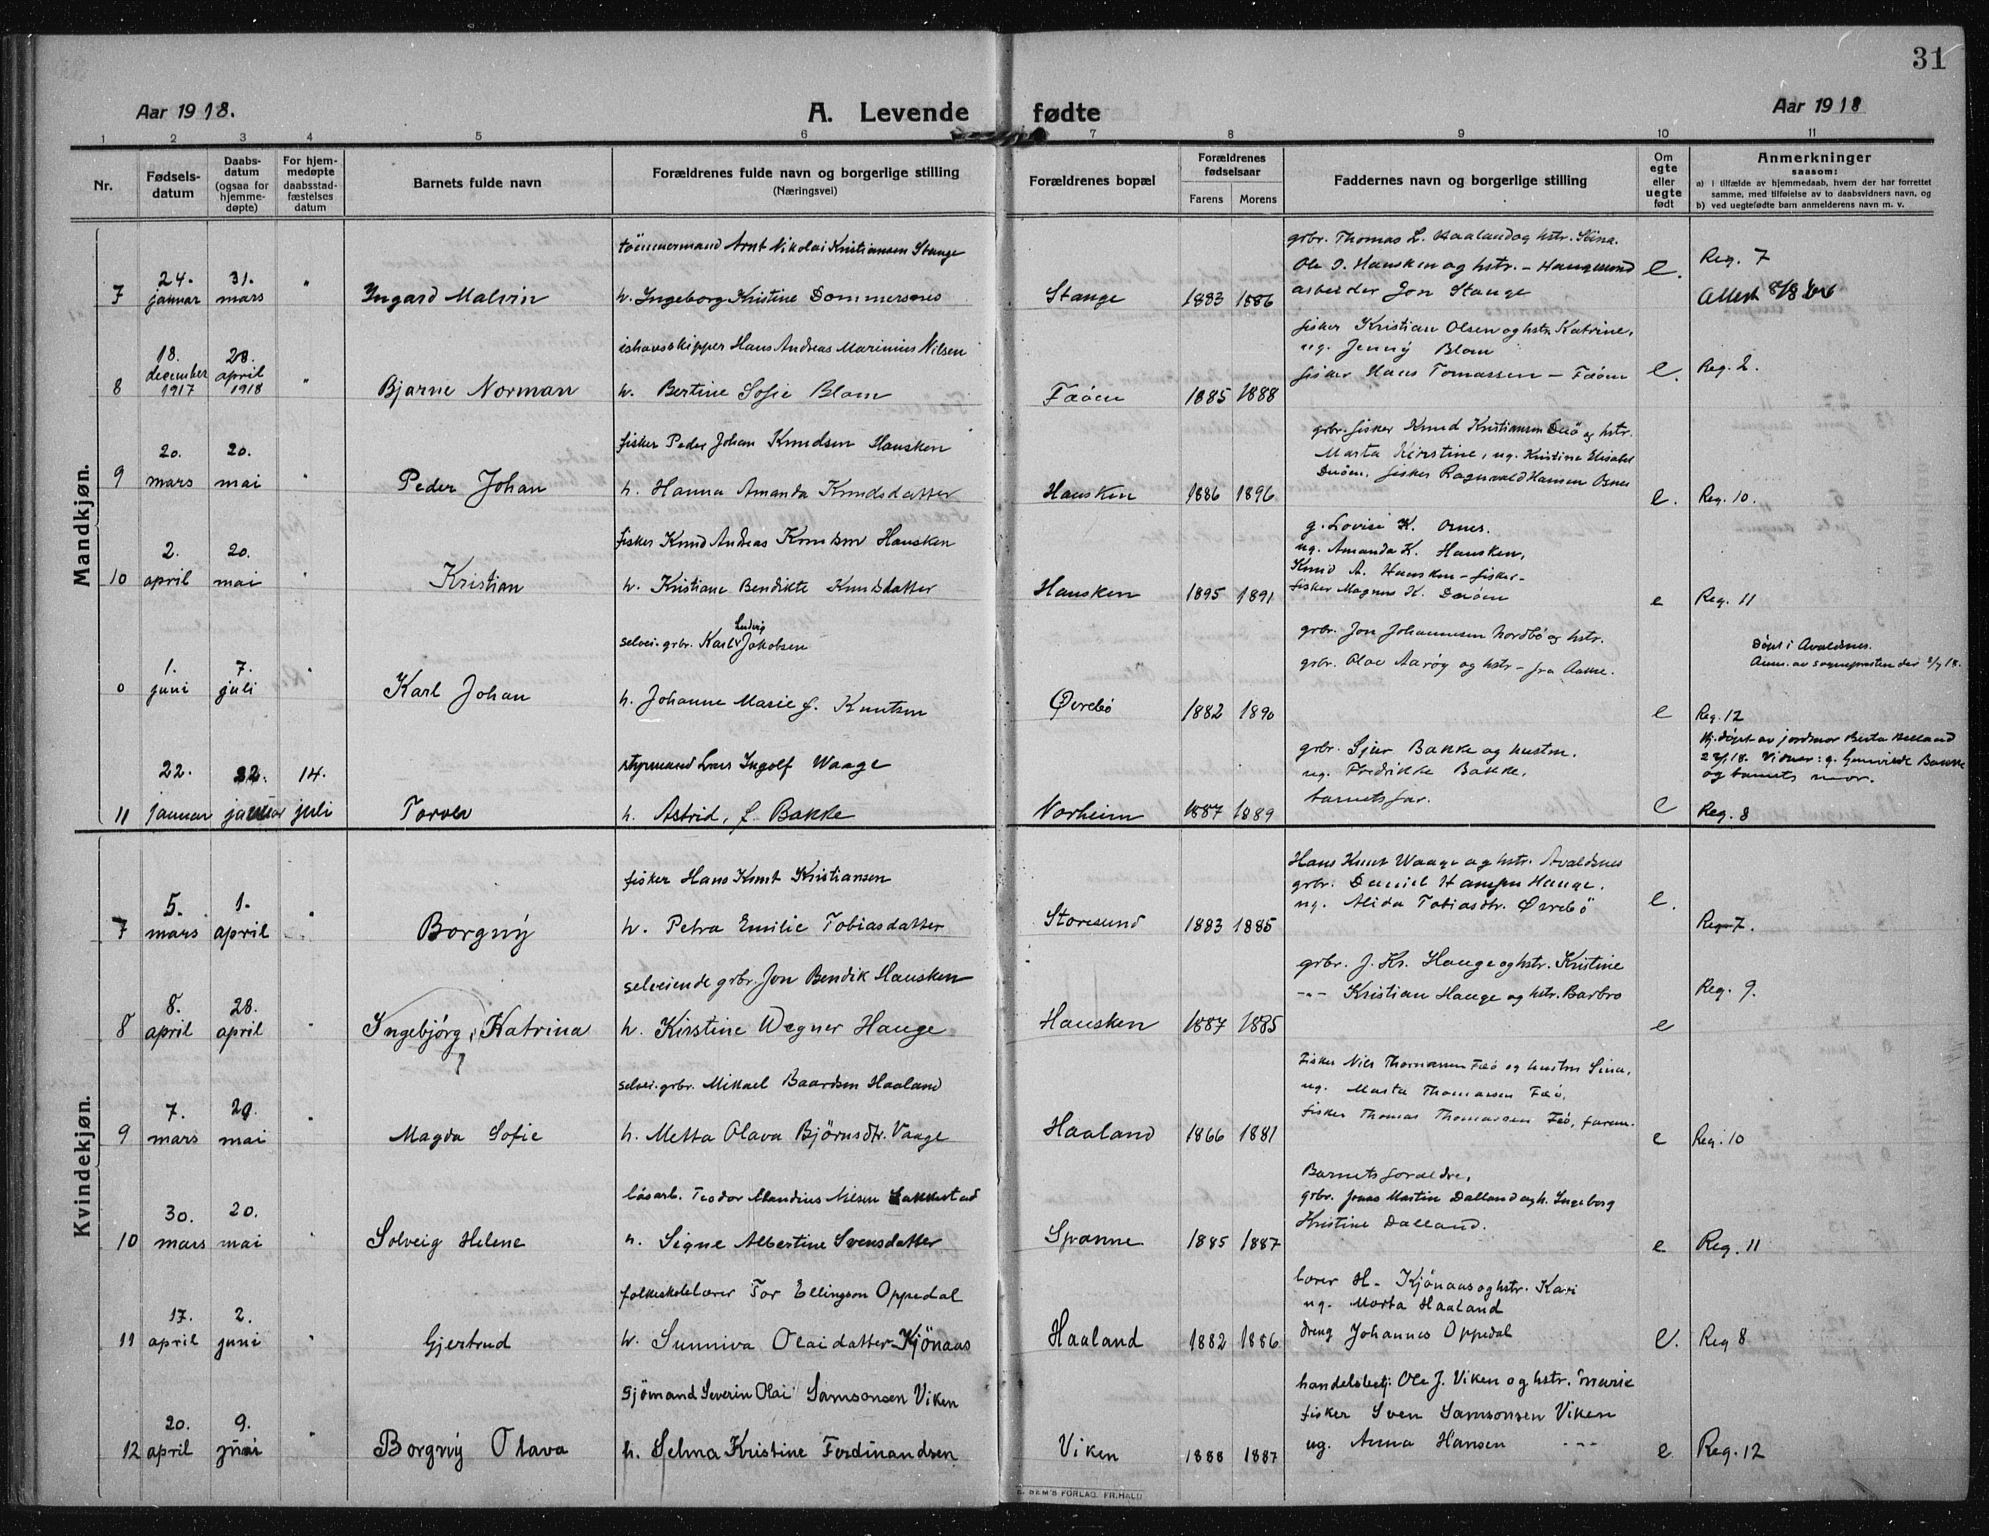 31
Aar 1918.
A. Levende fødte
Aar 1918
1 2 3 4 5 6 7 8 9 10 11
Nr.
Fødsels-
datum
Daabs-
datum
(ogsaa for
hjemme-
døpte)
For hjem-
medøpte
daabsstad-
fæstelses
datum
Barnets fulde navn
Forældrenes fulde navn og borgerlige stilling
(Næringsvei)
Forældrenes bopæl
Forældrenes
fødselsaar
Farens Morens
Faddernes navn og borgerlige stilling
Om
egte
eller
uegte
født
Anmerkninger
saasom:
a) i tilfælde av hjemmedaab, hvem der har forrettet
samme, med tilføielse av to daabsvidners navn, og
b) ved uegtefødte barn anmelderens navn m. v.
Mandkjøn.
7
24.
januar
31.
mars
"
Ingard Malvin
tömmermand Arnt Nikolai Kristiansen Stange
h. Ingeborg Kristine Dommersnes
Stange
1883 1886
grbr. Thomas L. Haaland og hstr. Stina.
Ole J. Hausken og hstr. – Haugesund
arbeider Jon Stange
e.
Reg. 7
Attest 8/8
8
18.
december
1917
28.
april
1918
"
Bjarne Norman
ishavsskipper Hans Andreas Marinius Nilsen
h. Bertine Sofie Blom
Fæøen
1885 1888
fisker Kristian Olsen og hstr. Katrine,
ug. Jenny Blom
fisker Hans Tomassen – Fæøen
e.
Reg. 2.
9
20.
mars
20.
mai
"
Peder Johan
fisker Peder Johan Knudsen Hausken
h. Hanna Amanda Knudsdatter
Hausken
1886 1896
grbr. fisker Knud Kristiansen Dærö og hstr.
Marta Kirstine, ug. Kristine Elisabet
fisker Ragnvald Hansen Osnes
e.
Reg. 10.
10
2.
april
20.
mai
"
Kristian
fisker Knud Andreas Knudsen Hausken
h. Kristiane Bendikte Knudsdatter
Hausken
1895 1891
g. Lovise K. Osnes.
ug. Amanda K. Hausken,
Knud A. Hausken – fisker –
fisker Magnus K. Dærøen
e
Reg. 11
0
1.
juni
7.
juli
"
Karl Johan
selvei. grbr. Karl Ludvig Jakobsen
h. Johanne Marie f. Knutsen
Øvrebö
1882 1890
grbr. Jon Johannessen Nordbö og hstr.
grbr. Olav Aarøy og hstr – fra Aakre.
e
Döpt i Avaldsnes.
Anm. av sogneprasten der 8/7 18.
Reg. 12
11
22.
januar
22.
januar
14.
juli
Torlev
styrmand Lars Ingolf Waage
h. Astrid, f. Bakke
Norheim
1887 1889
grbr. Sjur Bakke og hustru.
ug. Fredrikke Bakke.
barnets far.
e
Hj. döpt av jordmor Berta Helland
22/1 18. Vidner: g. Gunvilde Bakke
og barnets mor.
Reg. 8
Kvindekjøn.
7
5.
mars
1.
april
"
Borgny
fisker Hans Knut Kristiansen
h. Petra Emilie Tobiasdatter
Storesund
1883 1885
Hans Knut Waage og hstr. Avaldsnes
grbr. Daniel Hansen Hauge.
ug. Alida Tobiasdtr. Øvrebö
e.
Reg. 7.
8
8.
april
28.
april
"
Ingebjörg, Katrina
selveiende grbr. Jon Bendik Hausken
h. Kirstine Wegner Hauge
Hausken
1887 1885
grbr. J. Kr. Hauge og hstr. Kristine
-"- Kristian Hauge og hstr. Barbro
e
Reg. 9.
9
7.
mars
29.
mai
"
Magda Sofie
selvei. grbr. Mikael Baardsen Haaland
h. Metta Olava Bjørnsdtr. Vaage
Haaland
1866 1881
fisker Nils Thomassen Fæö og hustru Sina,
ug. Marta Thomassen Fæö,
fisker Thomas Thomassen Fæö, faren.
e
Reg. 10
10
30.
mars
20.
mai
"
Solveig Helene
lösarb. Teodor Mandius Nilsen Sakkestad
h. Signe Albertine Svensdatter
Spanne
1885 1887
Barnets foreldre,
grbr. Jonas Martin Dalland og h. Ingeborg
Kristine Dalland.
e
Reg. 11
11
17.
april
2.
juni
"
Gjertrud
folkeskolelærer Tor Ellingson Oppedal
h. Sunniva Olaidatter Kjönaas
Haaland
1882 1886
lærer H. Kjönaas og hstr. Kari
ug. Marta Haaland
dreng Johannes Oppedal
e.
Reg 8
12
20.
april
9.
juni
"
Borgny Olava
Sjömand Severin Olai Samsonsen Viken
h. Selma Kristine Ferdinandsen
Viken
1888 1887
handelsbetj. Ole J. Viken og hstr. Marie
fisker Sven Samsonsen Viken
ug. Anna Hansen -"-
e
Reg. 12
SEM'S FORLAG. FR.HALD